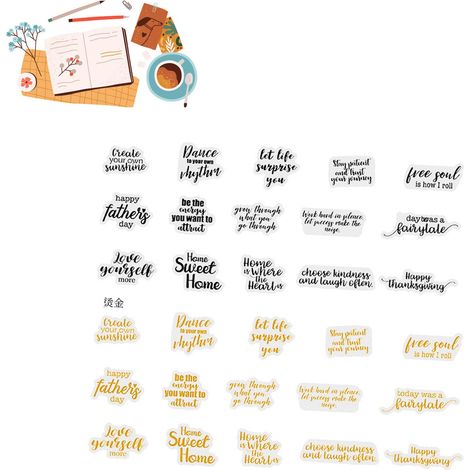 Create
your own
sunshine
Dance
to your own
rhythm
let life
surprise
you
Stay patient
and trust
your journey
free soul
is how I roll
happy
father's
day
be the
energy
you want to
attract
grow through
what you
go through
Work hard in silence,
let success make the
noise.
day was a
fairytale
Love
yourself
more
Home
Sweet
Home
Home
is Where
the
Heart is
choose kindness
and laugh often.
Happy
thanksgiving
烫金
Create
your own
sunshine
Dance
to your own
rhythm
let life
surprise
you
Stay patient
and trust
your journey
free soul
is how I roll
happy
father's
day
be the
energy
you want to
attract
grow through
what you
go through
Work hard in silence,
let success make the
noise.
today was a
fairytale
Love
yourself
more
Home
Sweet
Home
Home
is Where
the
Heart is
choose kindness
and laugh often.
Happy
thanksgiving